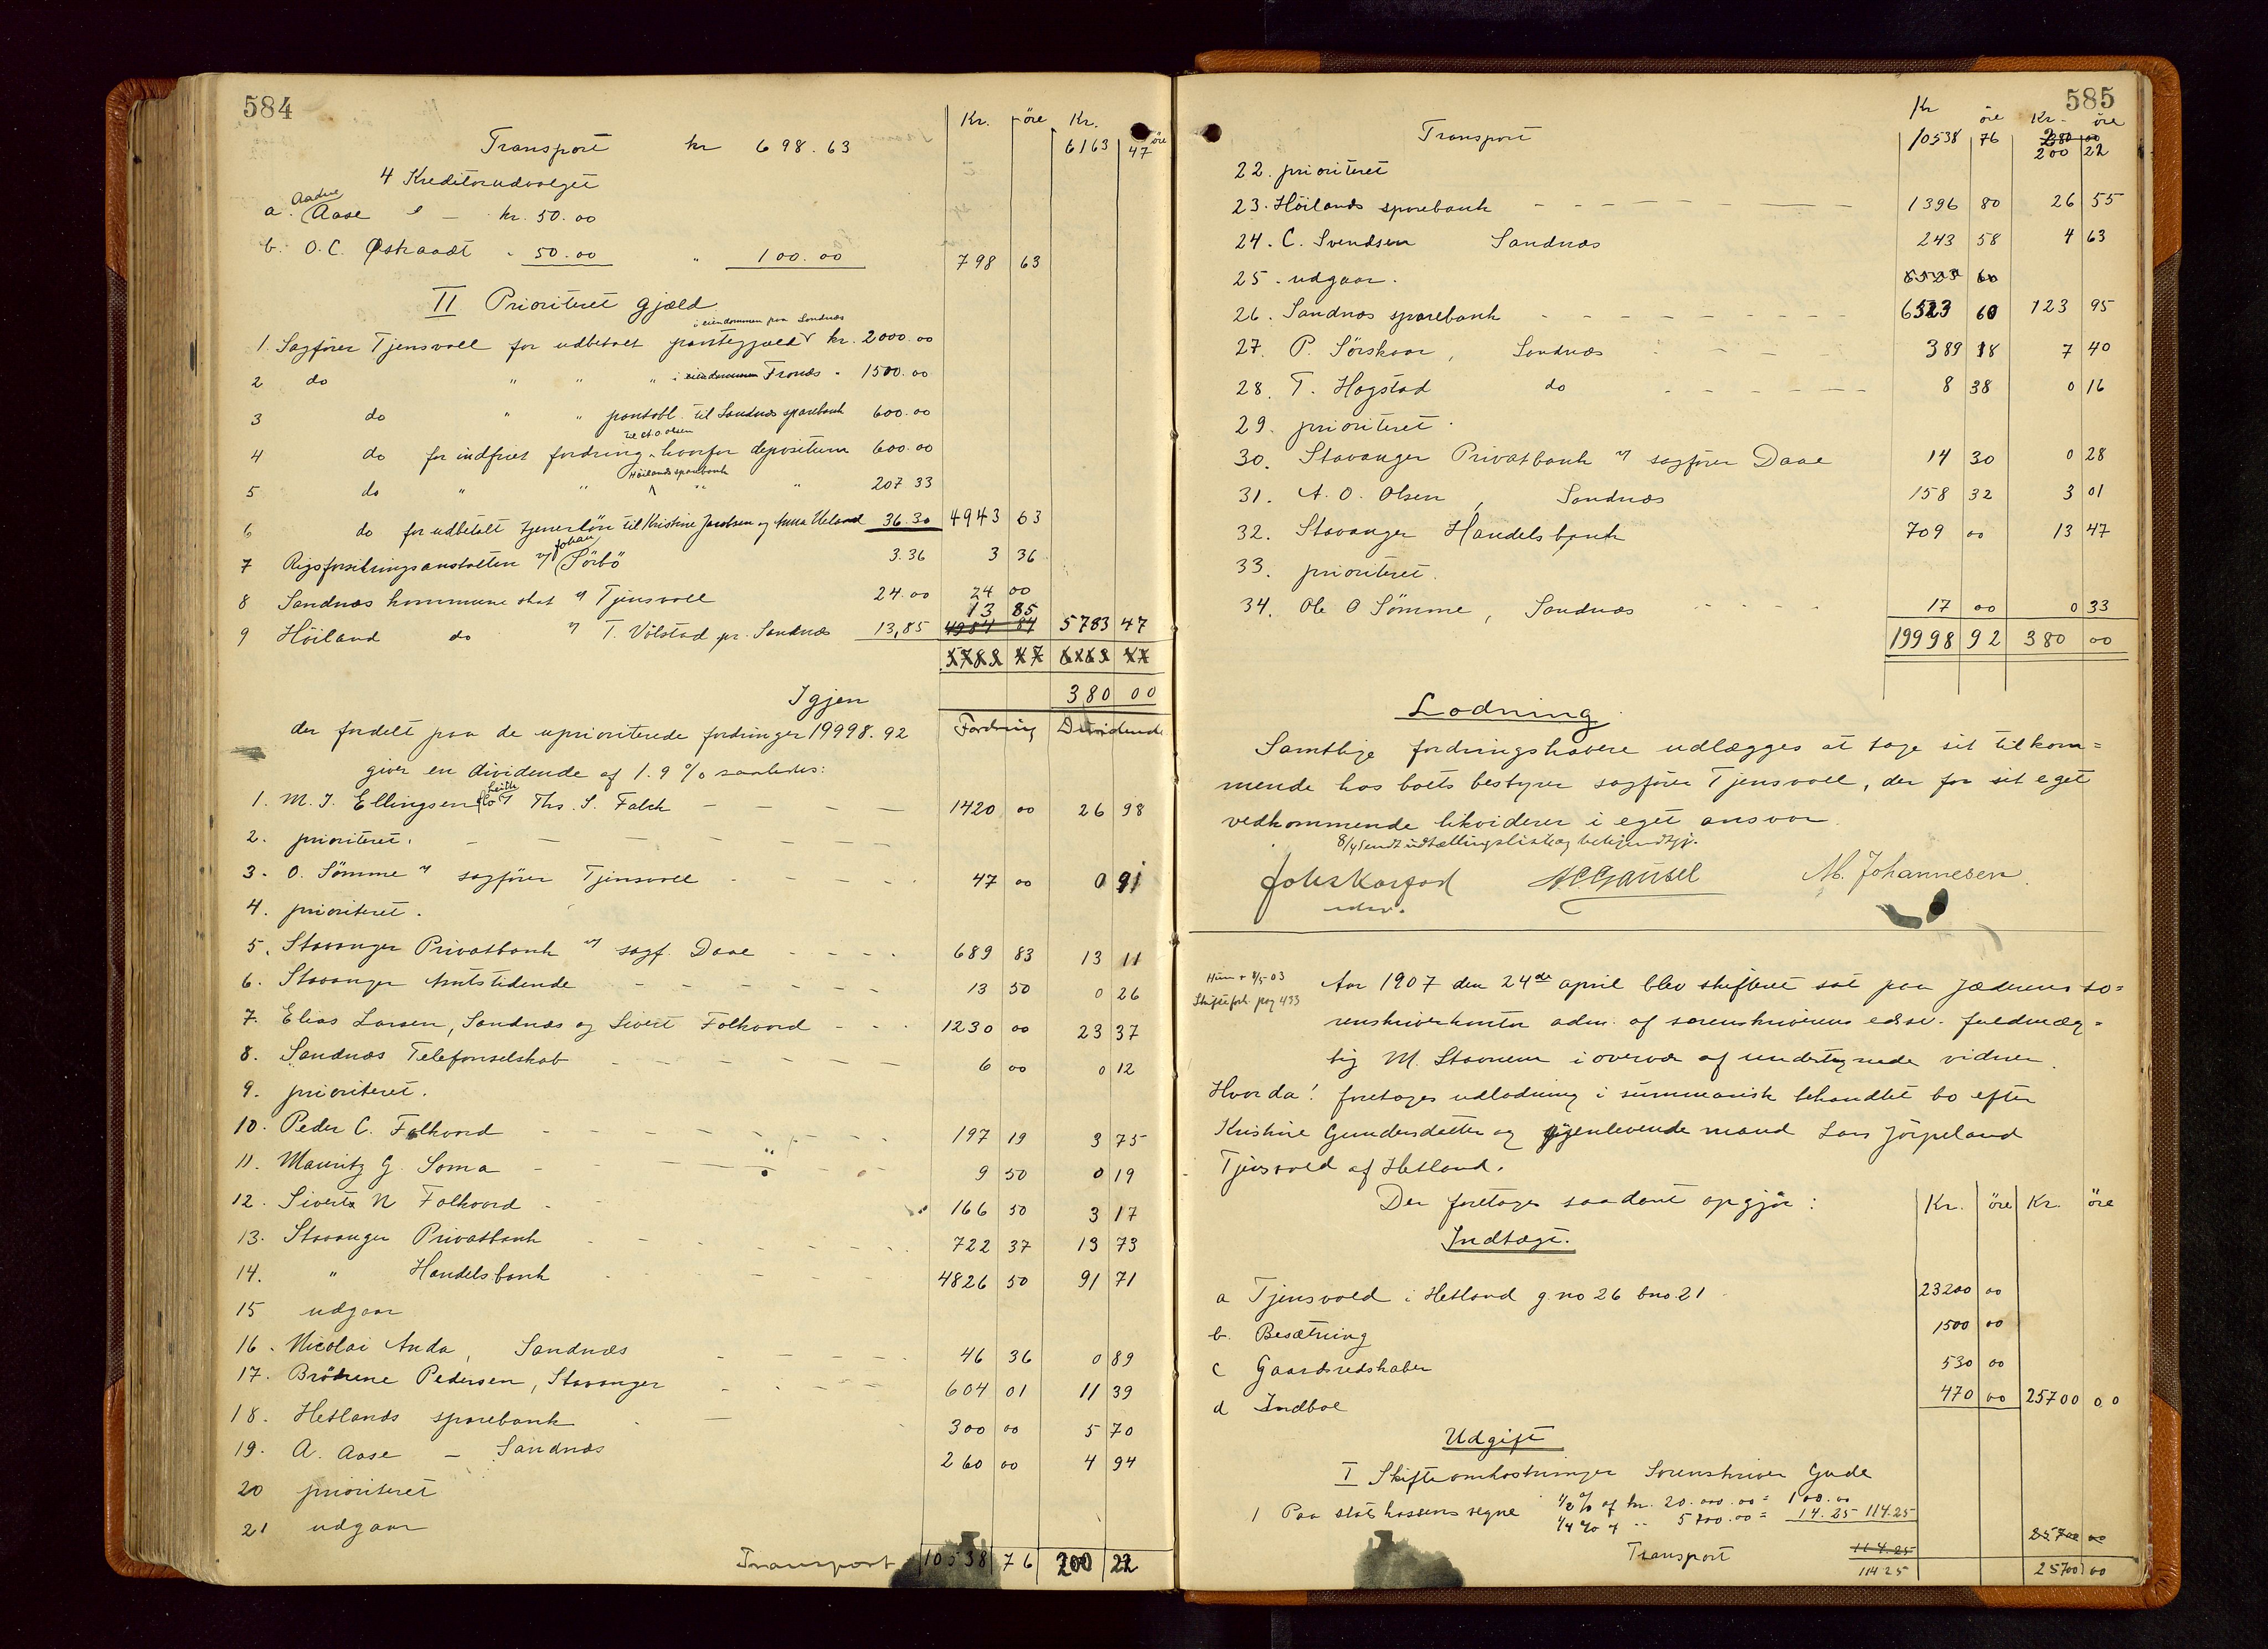 584
Kr. öre Kr. öre
Transport kr 698.63 6163 47
4 Kreditorudvalget
a. Aadne Aase kr. 50.00
b. O. C. Østraadt " 50.00 " 100.00 798 63
II Prioriteret gjæld
i eiendommen paa Sandnæs
1. Sagfører Tjensvoll for udbetalt pantegjæld kr. 2000.00
2 do " " " i eiendommen Tronæs " 1500.00
3 do " " pantobl. til Sandnæs sparebank 600.00
til A O Olsen
4 do for indfriet fordring, hvorfor depositum 600.00
Höilands sparebank
5 do " " " " 207 33
6 do for udbetalt tjenerløn til Kristine Jacobsen og Anna Ueland 36.30 4943 63
7 Rigsforsikringsanstalten v/ Johan Sörbö 3.36 3 36
8 Sandnæs kommune skat v/ Tjensvoll 24.00 24 00
13 85
9 Höiland do v/ T. Völstad pr. Sandnæs 13,85 4984 84 5783 47
5783 47 6163 47
Igjen 380 00
der fordelt paa de uprioriterede fordringer 19998.92 Fordring Dividende
giver en dividende af 1.9 % saaledes:
1. M. J. Ellingsen & Co v/ Ths. S. Falck 1420 00 26 98
2. prioriteret.
3. O. Sömme v/ sagfører Tjensvoll 47 00 0 91
4. prioriteret.
5. Stavanger Privatbank v/ sagf. Daae 689 83 13 11
6. Stavanger Amtstidende 13 50 0 26
7. Elias Larsen, Sandnæs og Sivert Folkvord 1230 00 23 37
8. Sandnæs Telefonselskab 6 00 0 12
9. prioriteret.
10. Peder C. Folkvord 197 19 3 75
11. Mauritz G. Soma 9 50 0 19
12. Sivert N Folkvord 166 50 3 17
13. Stavanger Privatbank 722 37 13 73
14. " Handelsbank 4826 50 91 71
15 udgaar
16. Nicolai Anda, Sandnæs 46 36 0 89
17. Brödrene Pedersen, Stavanger 604 01 11 39
18. Hetlands sparebank 300 00 5 70
19. A. Aase – Sandnæs 260 00 4 94
20 prioriteret
21 udgaar
Transport 10538 76 200 22
585
Kr öre Kr. öre
Transport 10538 76 380 00
200 22
22. prioriteret
23. Höilands sparebank 1396 80 26 55
24. C. Svendsen Sandnæs 243 58 4 63
25. udgaar. 6523 60
26. Sandnæs sparebank 6523 60 123 95
27. P. Sörskaar, Sandnæs 389 18 7 40
28. T. Hogstad do 8 38 0 16
29. prioriteret.
30. Stavanger Privatbank v/ sagfører Daae 14 30 0 28
31. A. O. Olsen, Sandnæs 158 32 3 01
32. Stavanger Handelsbank 709 00 13 47
33. prioriteret.
34. Ole O Sömme, Sandnæs 17 00 0 33
19998 92 380 00
Lodning
Samtlige fordringshavere udlægges at tage sit tilkom=
mende hos boets bestyrer sagfører Tjensvoll, der for sit eget
vedkommende likviderer i eget ansvar.
8/4 sendt udtællingsliste og bekjendtgj.
A C Gausel M. Johannesen
Aar 1907 den 24de april blev skifteret sat paa Jæderens so=
Skiftefoh. pag 433
renskriverkontor adm. af sorenskriverens edsv. fuldmæg=
tig M. Stavnem i overvær af undertegnede vidner.
Hvorda! foretages udlodning i summarisk behandlet bo efter
Kristine Gundersdatter og gjenlevende mand Lars Jörpeland
Tjensvold af Hetland.
Der foretages saadant opgjör: Kr. öre Kr. öre
Indtægt.
a Tjensvold i Hetland g.no 26 bno 21 23200 00
b. Besætning 1500 00
c Gaardsredskaber 530 00
d Indbo 470 00 25700 00
Udgift
I Skifteomkostninger Sorenskriver Gude
1 Paa statskassens vegne 1/2 % af kr. 20.000.00 = 100.00
1/4 % " " 5700.00 = 14.25 114.25
25700 00
Transport 114.25
114 25 25700 00